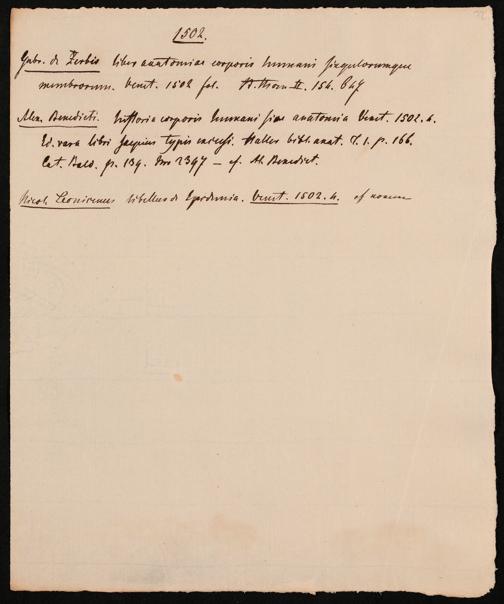 1502.
Gabr. de Zerbis liber anatomiae corporis humani singulorumque
membrorum. Venet. 1502 fol. II. 154.
Alex. Benedicti. historia corporis humani sive anatomia Venet. 1502. 4.
Ed. rara libri saepius typis excusi. Haller bibl. anat. T. 1. p. 166.
Cat. Bald. p. 139. Nro 2397 — cf. Al. Benedict.
Nicol. Leonicenus libellus de Epidemia. Venet. 1502. 4. cf